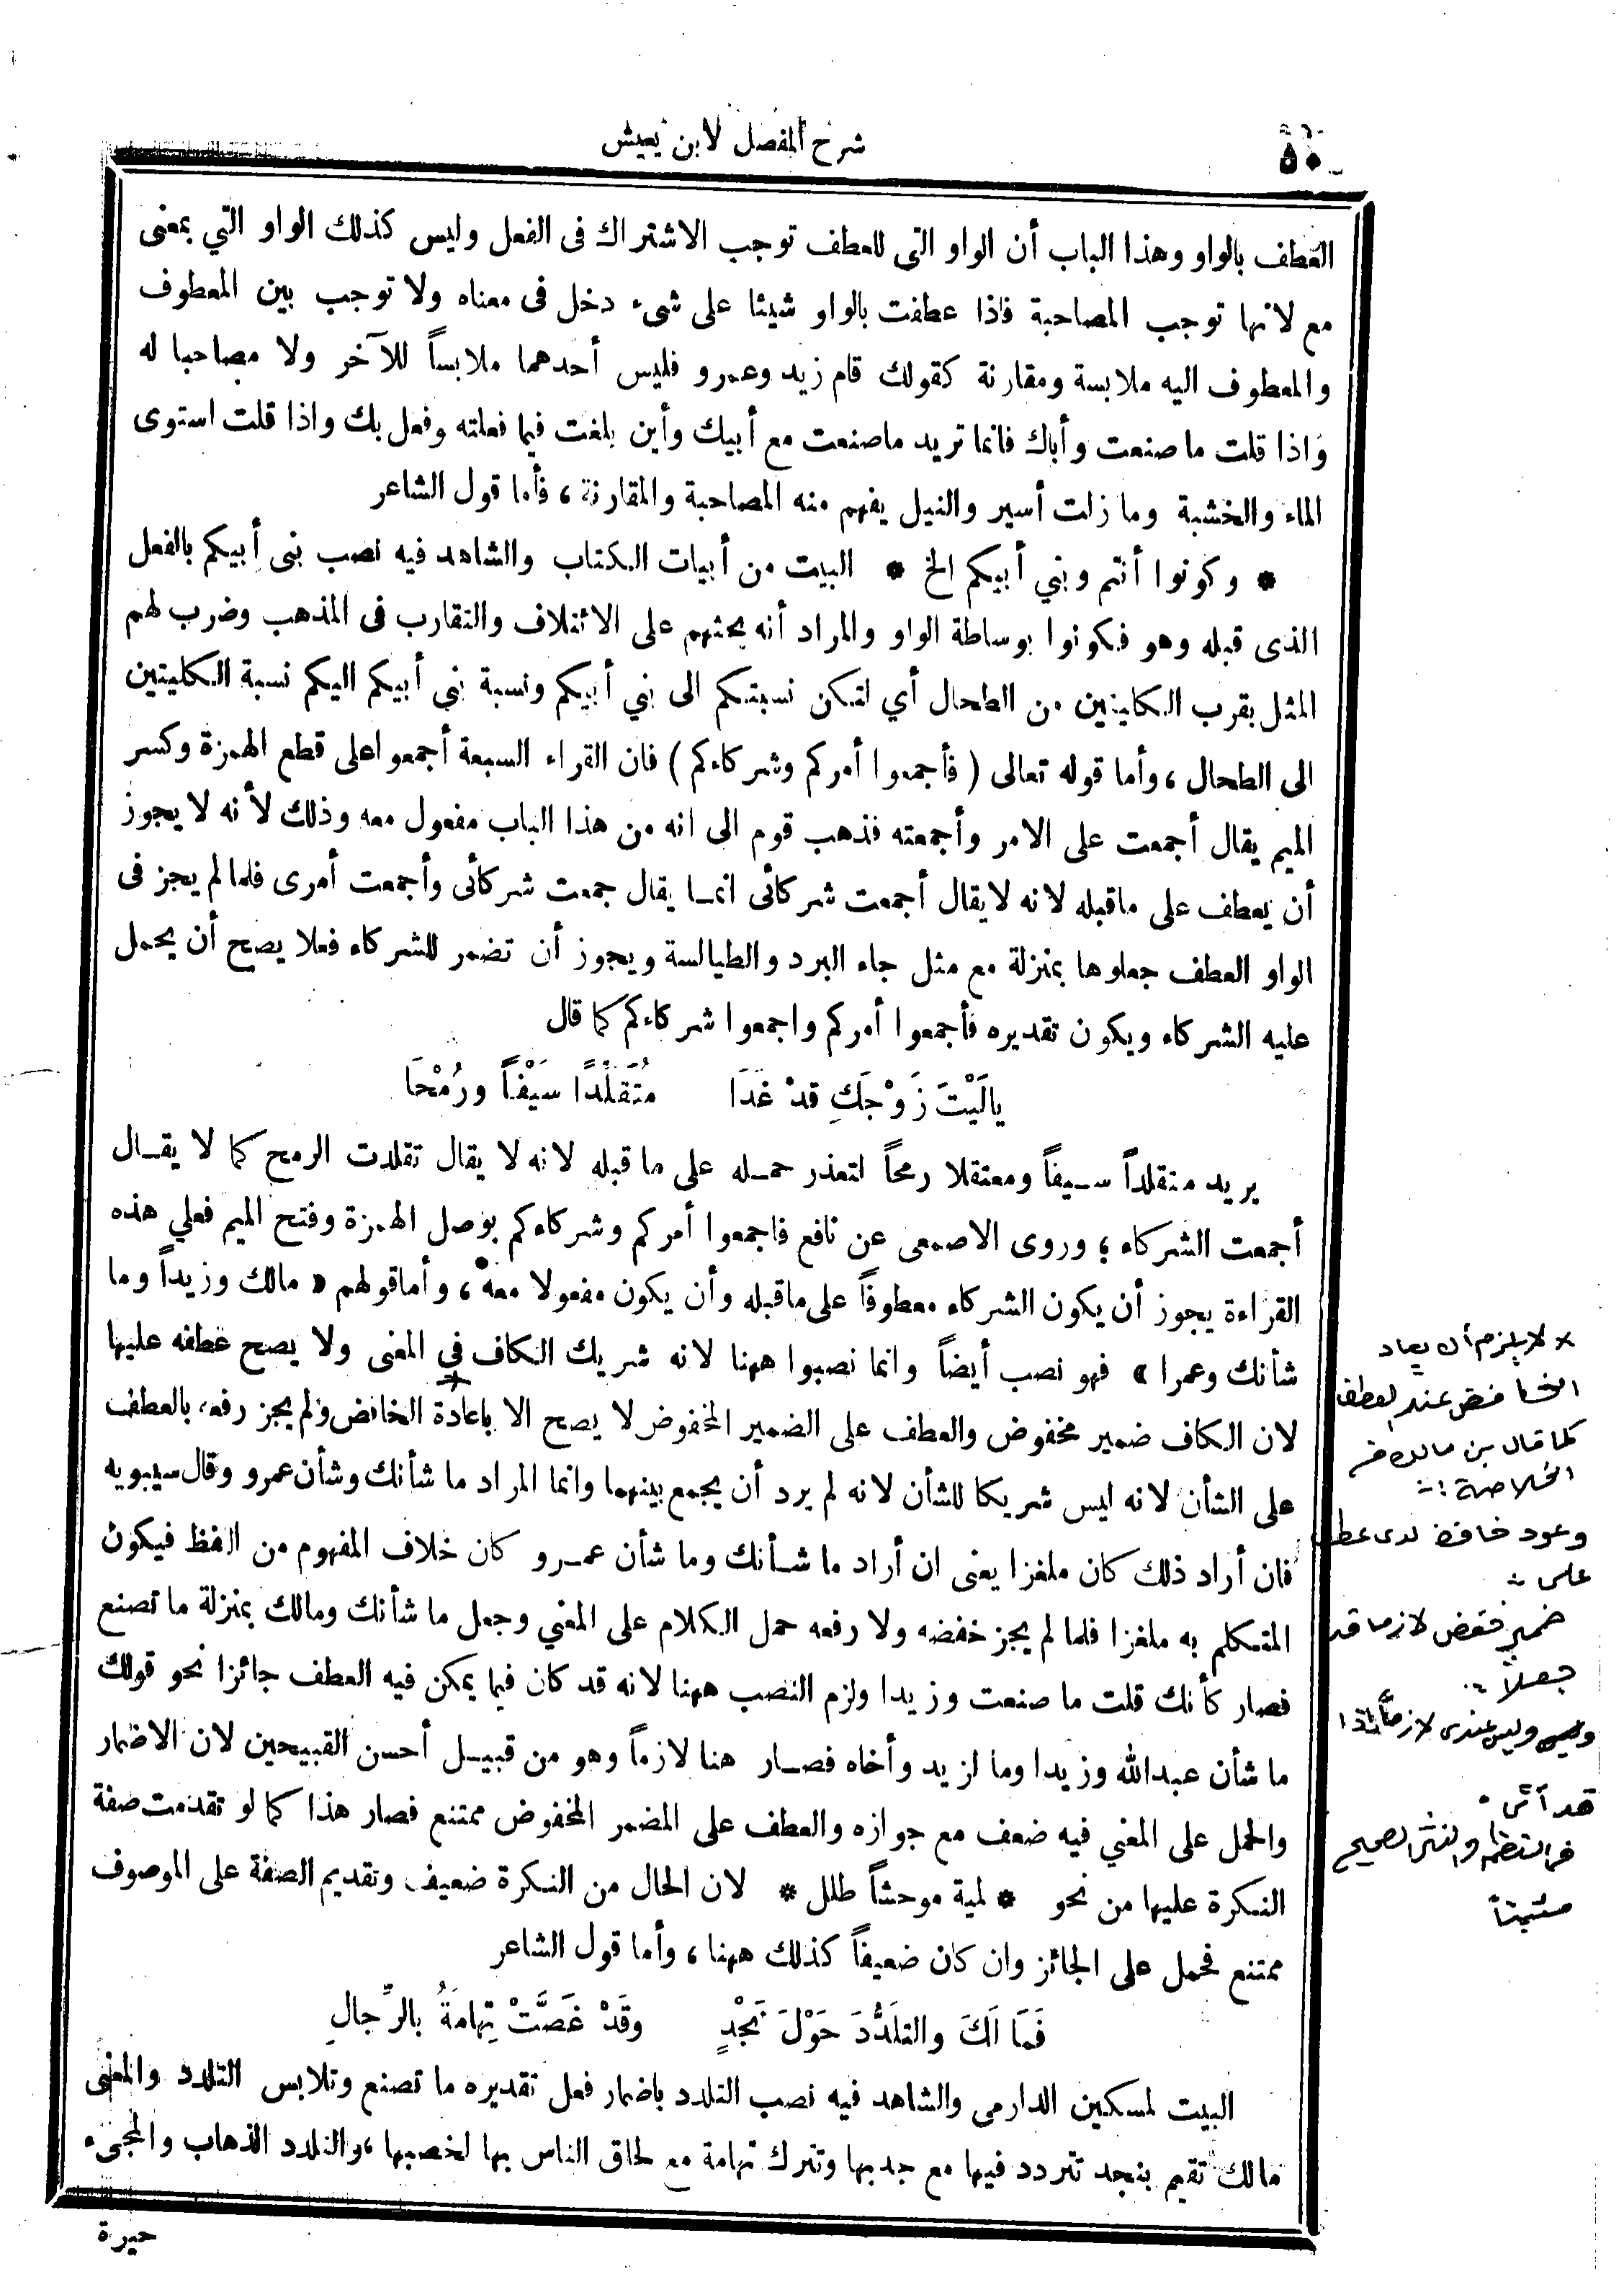 ٥٠
شرح المفصل لابن يعيش
العطف بالواو وهذا الباب أن الواو التى للعطف توجب الاشتراك فى الفعل وليس كذلك الواو التي بمعنى
مع لانها توجب المصاحبة فاذا عطفت بالواو شيئا على شىء دخل فى معناه ولا توجب بين المعطوف
والمعطوف اليه ملابسة ومقارنة كقولك قام زيد وعمرو فليس أحدهما ملابساً للآخر ولا مصاحبا له
واذا قلت ما صنعت وأباك فانما تريد ماصنعت مع أبيك وأين بلغت فيما فعلته وفعل بك واذا قلت استوى
الماء والخشبة وما زلت أسير والنيل يفهم منه المصاحبة والمقارنة ، فأما قول الشاعر
* وكونوا أنتم وبني أبيكم الخ * البيت من أبيات الكتاب والشاهد فيه نصب بنى أبيكم بالفعل
الذى قبله وهو فكونوا بوساطة الواو والمراد أنه يحثهم على الائتلاف والتقارب فى المذهب وضرب لهم
المثل بقرب الكليتين من الطحال أي لتكن نسبتكم الى بني أبيكم ونسبة بني أبيكم اليكم نسبة الكليتين
الى الطحال ، وأما قوله تعالى ( فأجمعوا أمركم وشركاءكم ) فان القراء السبعة أجمعوا على قطع الهمزة وكسر
الميم يقال أجمعت على الامر وأجمعته فذهب قوم الى انه من هذا الباب مفعول معه وذلك لأنه لا يجوز
أن يعطف على ماقبله لانه لايقال أجمعت شركائى انما يقال جمعت شركائى وأجمعت أمرى فلما لم يجز فى
الواو العطف جعلوها بمنزلة مع مثل جاء البرد والطيالسة ويجوز أن تضمر للشركاء فعلا يصح أن يحمل
عليه الشركاء ويكون تقديره فأجمعوا أمركم واجمعوا شركاءكم كما قال
يالَيْتَ زَوْجَكِ قدْ غَدَا مُتَقَلِّدًا سَيْفاً ورُمْحَا
يريد متقلداً سيفاً ومعتقلا رمحاً لتعذر حمله على ما قبله لانه لا يقال تقلدت الرمح كما لا يقال
أجمعت الشركاء ؛ وروى الاصمعى عن نافع فاجمعوا أمركم وشركاءكم بوصل الهمزة وفتح الميم فعلي هذه
القراءة يجوز أن يكون الشركاء معطوفاً على ماقبله وأن يكون مفعولا معه ، وأماقولهم « مالك وزيداً وما
شأنك وعمرا » فهو نصب أيضاً وانما نصبوا ههنا لانه شريك الكاف في المعنى ولا يصح عطفه عليها
لان الكاف ضمير مخفوض والعطف على الضمير المخفوض لا يصح الا باعادة الخافض ولم يجز رفعه بالعطف
على الشأن لانه ليس شريكا للشأن لانه لم يرد أن يجمع بينهما وانما المراد ما شأنك وشأن عمرو وقال سيبويه
فان أراد ذلك كان ملغزا يعنى ان أراد ما شأنك وما شأن عمرو كان خلاف المفهوم من اللفظ فيكون
المتكلم به ملغزا فلما لم يجز خفضه ولا رفعه حمل الكلام على المعني وجعل ما شأنك ومالك بمنزلة ما تصنع
فصار كأنك قلت ما صنعت وزيدا ولزم النصب ههنا لانه قد كان فيما يمكن فيه العطف جائزا نحو قولك
ما شأن عبدالله وزيدا وما لزيد وأخاه فصار هنا لازماً وهو من قبيل أحسن القبيحين لان الاضمار
والحمل على المعني فيه ضعف مع جوازه والعطف على المضمر المخفوض ممتنع فصار هذا كما لو تقدمت صفة
النكرة عليها من نحو * لمية موحشاً طلل * لان الحال من النكرة ضعيف وتقديم الصفة على الموصوف
ممتنع فحمل على الجائز وان كان ضعيفاً كذلك ههنا ، وأما قول الشاعر
فَمَا لَكَ والتلَدُّدَ حَوْلَ نَجْدٍ وقَدْ غَصَّتْ تِهامَةُ بالرِّجالِ
البيت لمسكين الدارمى والشاهد فيه نصب التلدد باضمار فعل تقديره ما تصنع وتلابس التلدد والمعنى
مالك تقيم بنجد تتردد فيها مع جدبها وتترك تهامة مع لحاق الناس بها لخصبها ، والتلدد الذهاب والمجىء
حيرة
× لا يلزم أن يعاد
الخافض عند العطف
كما قال بن مالك في
الخلاصة :-
وعود خافض لدى عطف
على :
ضمير خفض لازما قد
جعلا :
وليس عندى لازماً إذا
قد أتى .
في النظم والنثر الصحيح
مثبتاً